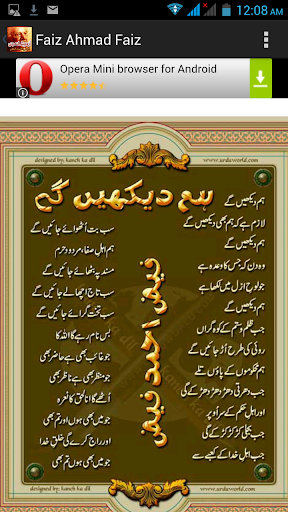 12:08 AM
Faiz Ahmad Faiz
Opera Mini browser for Android
designed by: kanch ka dil
www.urduworld.com
ہم دیکھیں گے
فیض احمد فیض
ہم دیکھیں گے
لازم ہے کہ ہم بھی دیکھیں گے
وہ دن کہ جس کا وعدہ ہے
جو لوح ازل میں لکھا ہے
ہم دیکھیں گے
جب ظلم و ستم کے کوہ گراں
روئی کی طرح اُڑ جائیں گے
ہم محکوموں کے پاؤں تلے
جب دھرتی دھڑ دھڑ دھڑکے گی
اور اہل حکم کے سر اوپر
جب بجلی کڑ کڑ کڑکے گی
جب اہل خدا کے کعبے سے
سب بت اُٹھوائے جائیں گے
ہم اہل صفا، مردود حرم
مسند پہ بٹھائے جائیں گے
سب تاج اچھالے جائیں گے
سب تخت گرائے جائیں گے
بس نام رہے گا اللہ کا
جو غائب بھی ہے حاضر بھی
جو منظر بھی ہے ناظر بھی
اُٹھے گا انا الحق کا نعرہ
جو میں بھی ہوں اور تم بھی ہو
اور راج کرے گی خلق خدا
جو میں بھی ہوں تم بھی ہو
designed by: kanch ka dil
www.urduworld.com